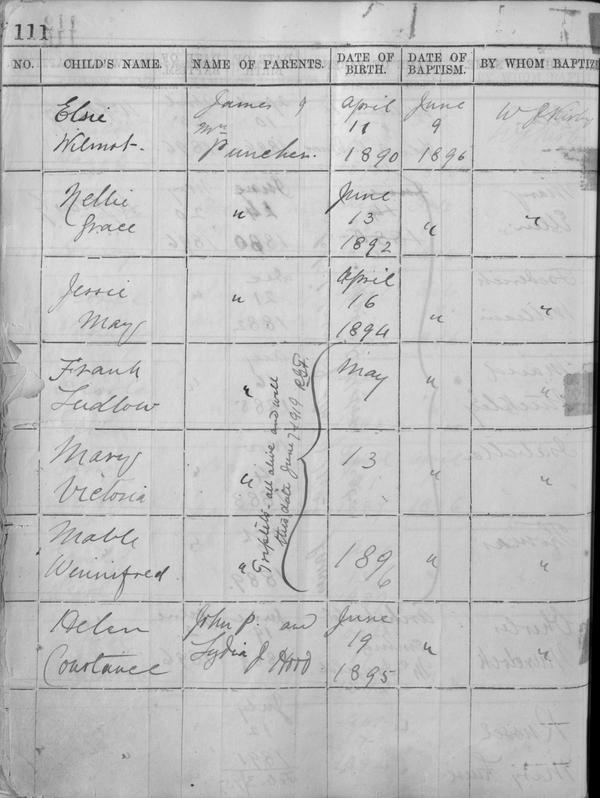 111
NO. CHILD'S NAME. NAME OF PARENTS. DATE OF BIRTH. DATE OF BAPTISM. BY WHOM BAPTIZE
Elsie James & April June W. J. Kirby
Wilmot - Mrs 11 9
Puncher. 1890 1896
Nellie June
Grace " 13 " "
1892
Jessie April
May " 16 " "
1894
Frank May
Ludlow " " "
Mary 13
Victoria " " "
Mable 1896
Winnifred " " "
Triplets - all alive and well
this date June 7 1919 RGF.
Helen John P. and June
Constance Lydia J. Hood 19 " "
1895